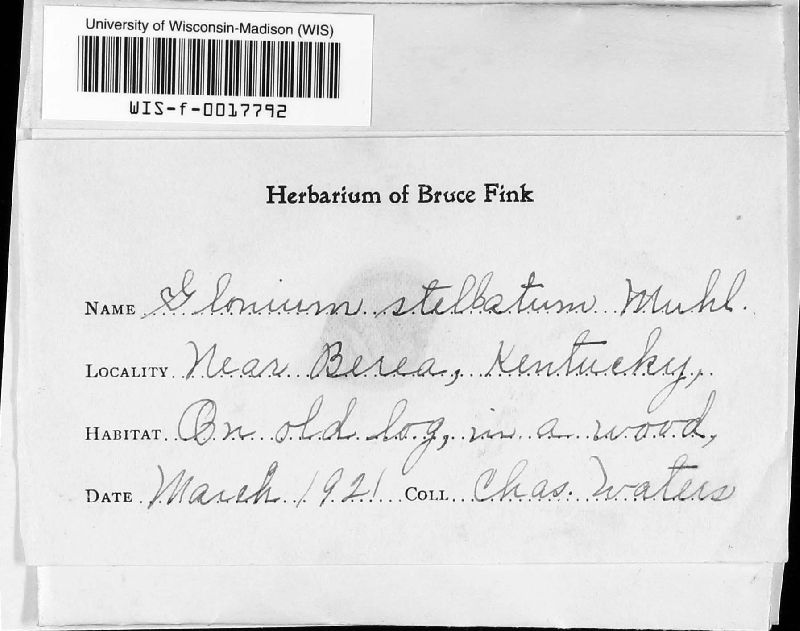 University of Wisconsin-Madison (WIS)
WIS-f-0017792
Herbarium of Bruce Fink
NAME Glonium stellatum Muhl.
LOCALITY Near Berea, Kentucky,
HABITAT On old log, in a wood,
DATE March 1921 COLL Chas. Waters